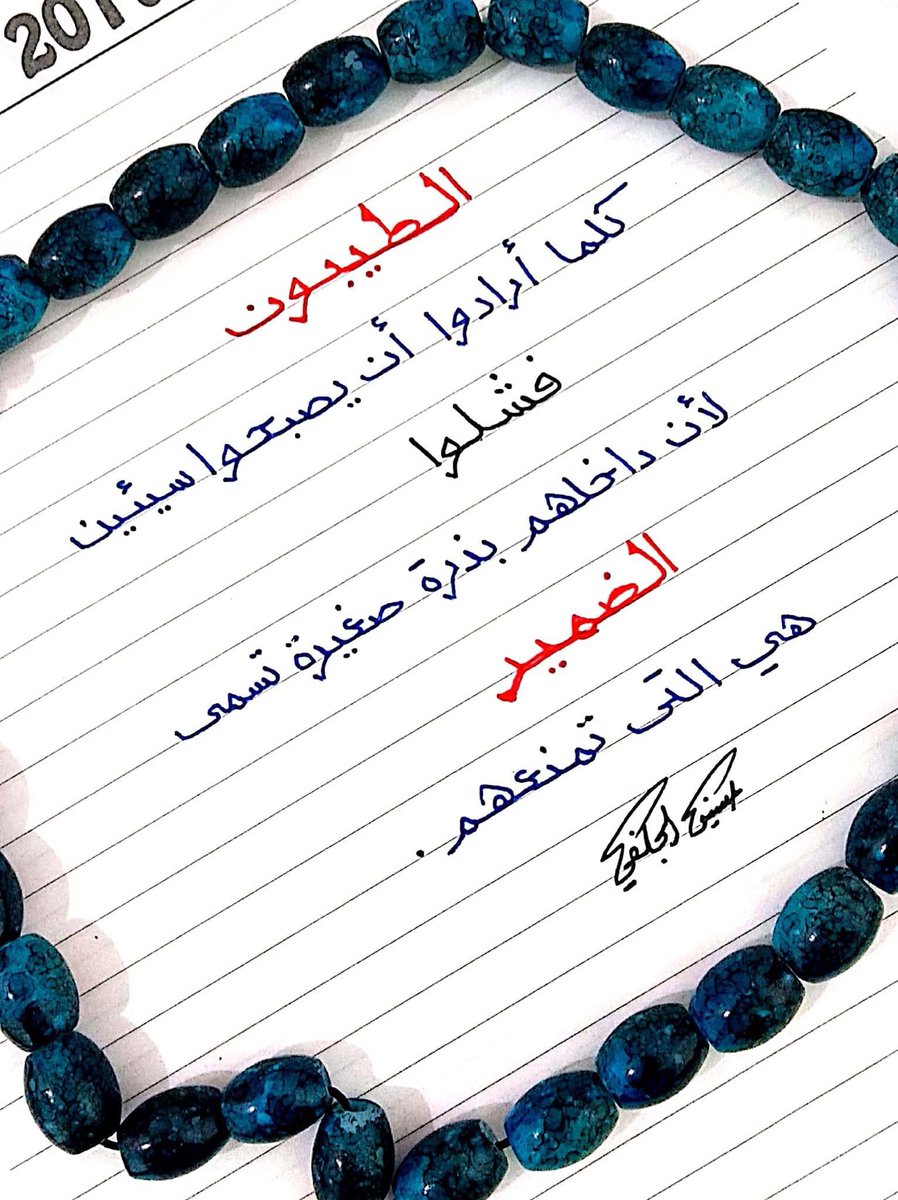 الطيبون
كلما أرادوا أن يصبحوا سيئين
فشلوا
لأن داخلهم بذرة صغيرة تسمى
الضمير
هي التي تمنعهم .